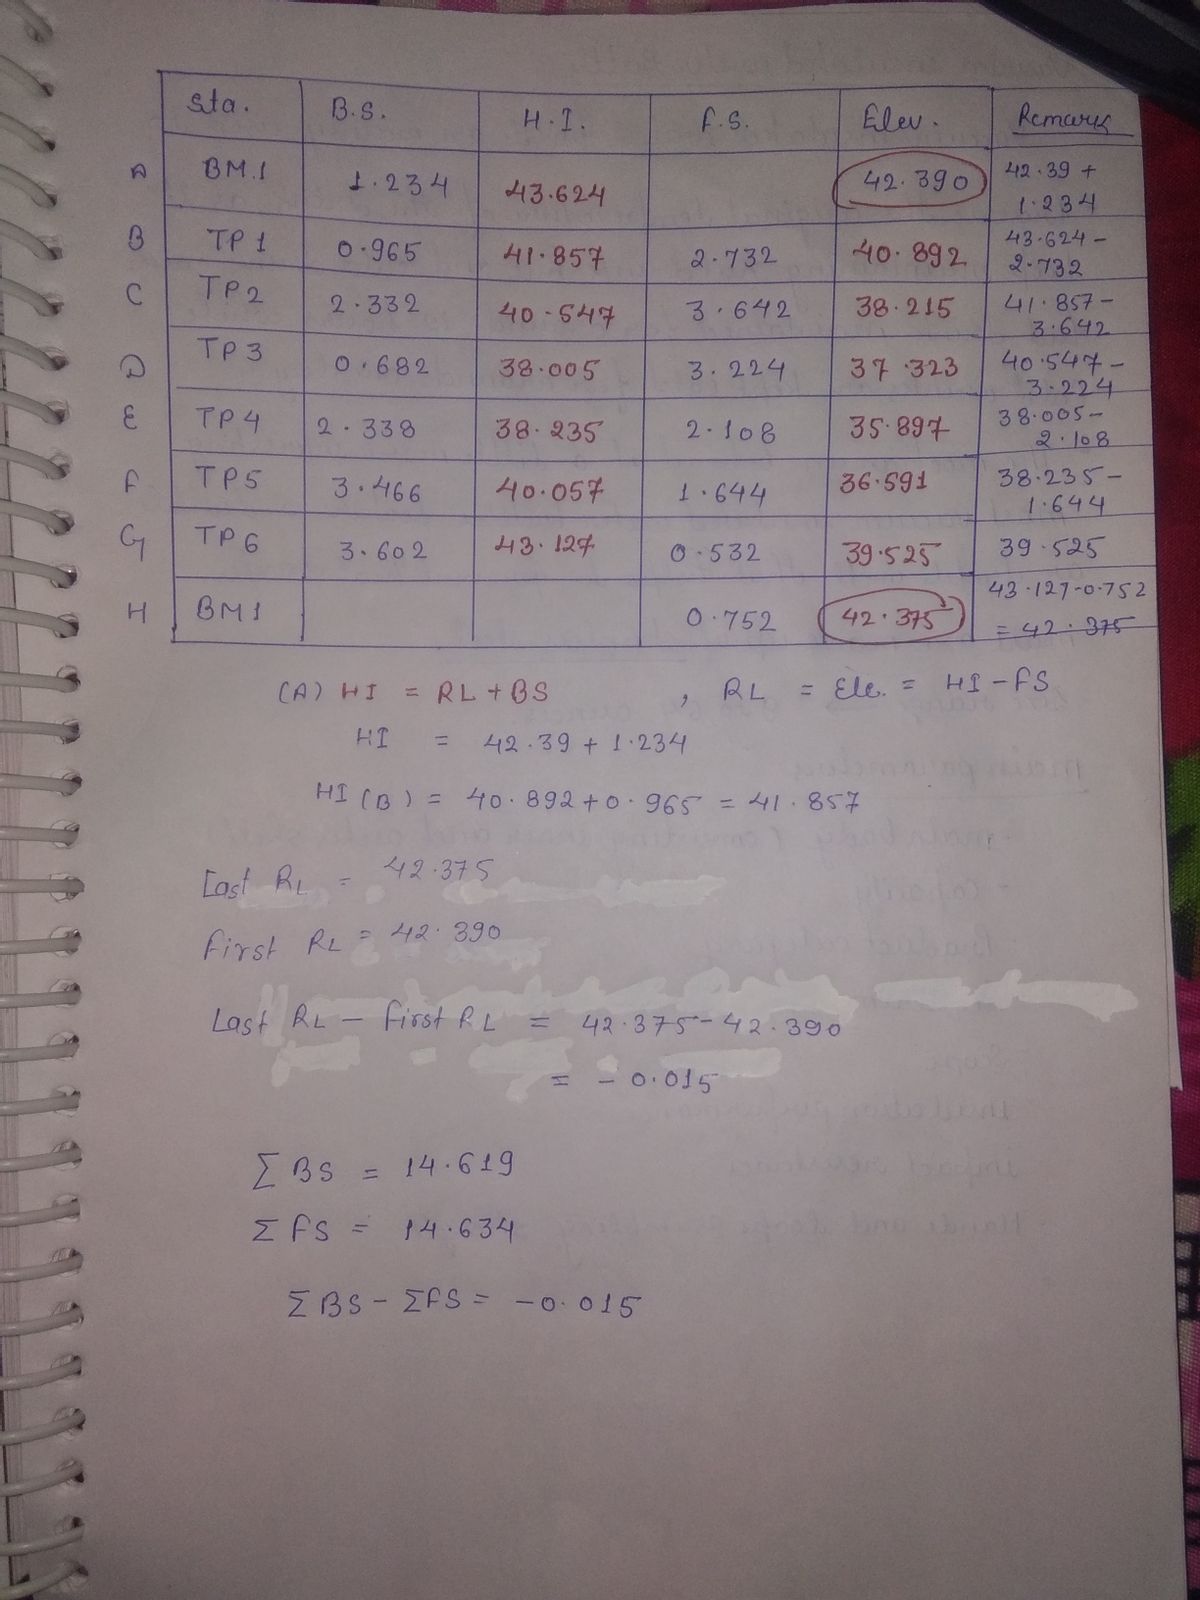 Sta. B.S. H.I. F.S. Elev. Remark
A BM.1 1.234 43.624 42.390 42.39 + 1.234
B TP1 0.965 41.857 2.732 40.892 43.624 - 2.732
C TP2 2.332 40.547 3.642 38.215 41.857 - 3.642
D TP3 0.682 38.005 3.224 37.323 40.547 - 3.224
E TP4 2.338 38.235 2.108 35.897 38.005 - 2.108
F TP5 3.466 40.057 1.644 36.591 38.235 - 1.644
G TP6 3.602 43.127 0.532 39.525 39.525
H BM1 0.752 42.375 43.127-0.752 = 42.375
(A) HI = RL + BS , RL = Ele. = HI - FS
HI = 42.39 + 1.234
HI (B) = 40.892 + 0.965 = 41.857
Last RL = 42.375
First RL = 42.390
Last RL - First RL = 42.375 - 42.390
= - 0.015
Σ BS = 14.619
Σ FS = 14.634
Σ BS - Σ FS = -0.015